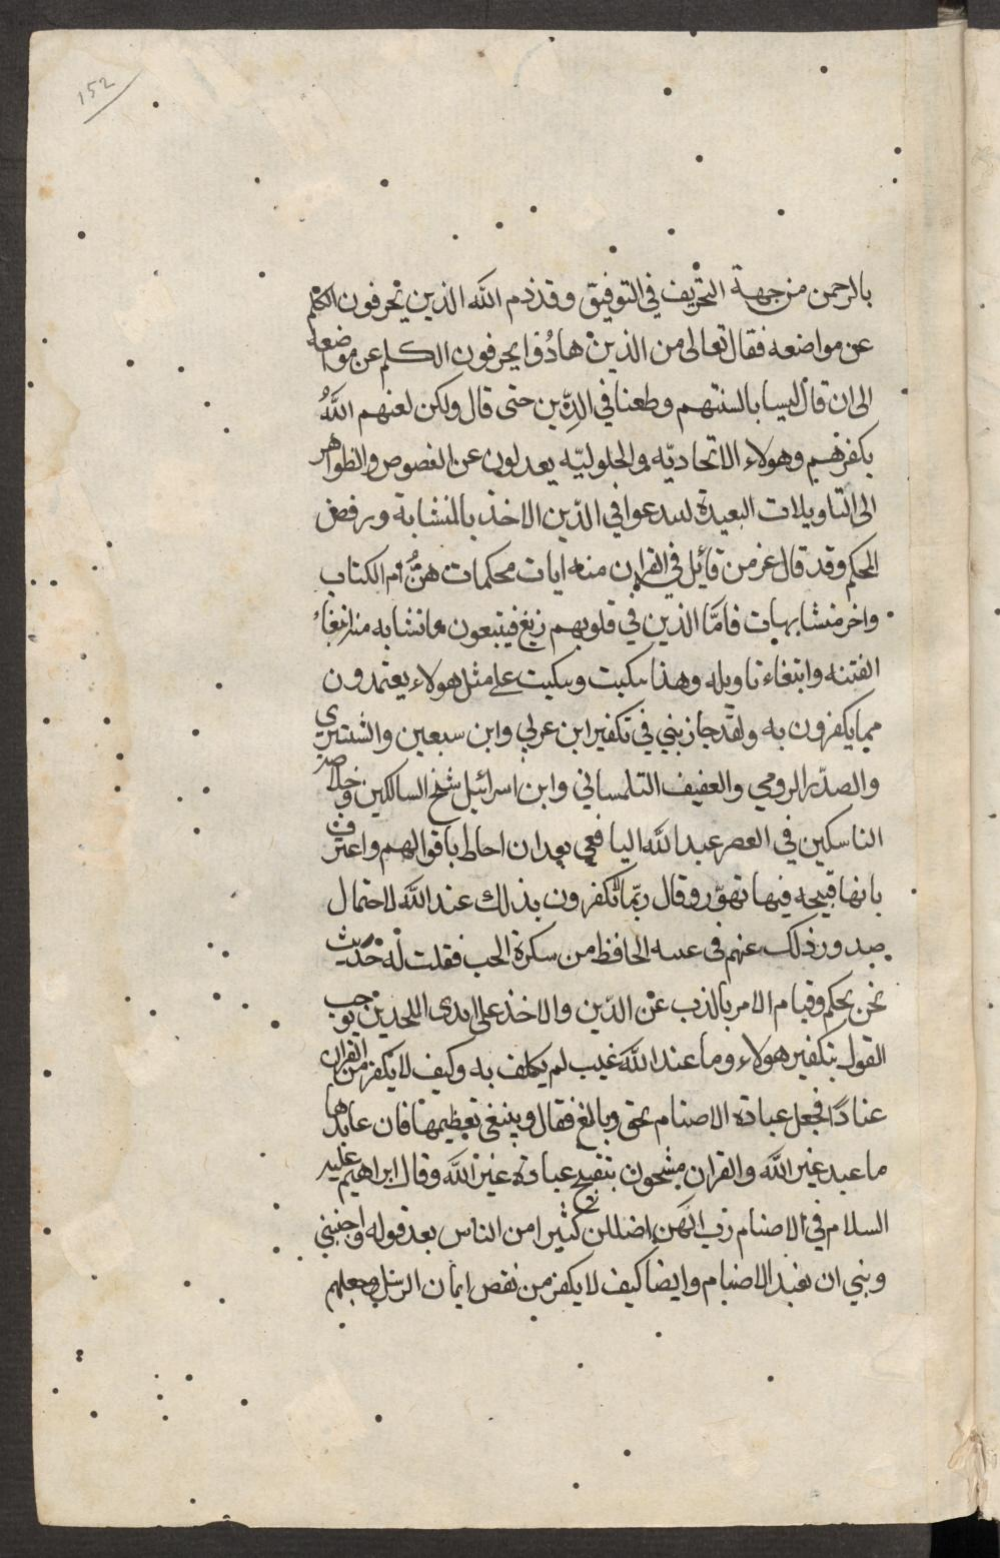 152
بالرحمن من جهة التحريف في التوفيق وقد ذم الله الذين يحرفون الكلم
عن مواضعه فقال تعالى من الذين هادُوا يحرفون الكلم عن مواضعه
الى ان قال ليا بالسنتهم وطعنا في الدّين حتى قال ولكن لعنهم اللهُ
بكفرهم وهولاء الاتحاديّه والحلوليّه يعدلون عن النصوص والظواهر
الى التاويلات البعيدة ليبدعوا في الدّين الاخذ بالمتشابة ورفض
المحكم وقد قال عز من قائيل في القران منه ايات محكمات هنُّ ام الكتاب
واخر متشابهات فامّا الذين في قلوبهم زيغ فيتبعون ما تشابه منه ابتغاء
الفتنه وابتغاء تاويله وهذا سكيت على مثل هولاء يعتمدون
مما يكفرون به ولقد جاز بني في تكفير ابن عربي وابن سبعين والششتري
والصدّر الرومي والعفيف التلمساني وابن اسرائيل شيخ السالكين وخلاصة
الناسكين في العصر عبد الله اليا فعي بعد ان احاط باقوالهم واعترف
بانها قبيحه فيها تهوّر وقال ربّما لا يكفرون بذلك عند الله لاحتمال
صدور ذلك عنهم في الحافظ من سكرة الحب فقلت لهُ حديث
نحن بحكم وقيام الامر بالذب عن الدّين والاخذ على ايدى الملحدين يوجب
القول بتكفير هولاء وما عند الله غيب لم يكلف به وكيف لا يكفر من القران
عنادًا فجعل عبادة الاصنام بحق وبالغ فقال وينبغي تعظيمها فان عابدها
ما عبد غير الله والقران مشحون بتقبيح عبادة غير الله وقال ابراهيم عليه
السلام في الاصنام رب انهن اضللن كثيرا من الناس بعد قوله واجنبني
وبني ان نعبد الاصنام وايضا كيف لا يكفر من نقص ايمان الرسل وجعلهم